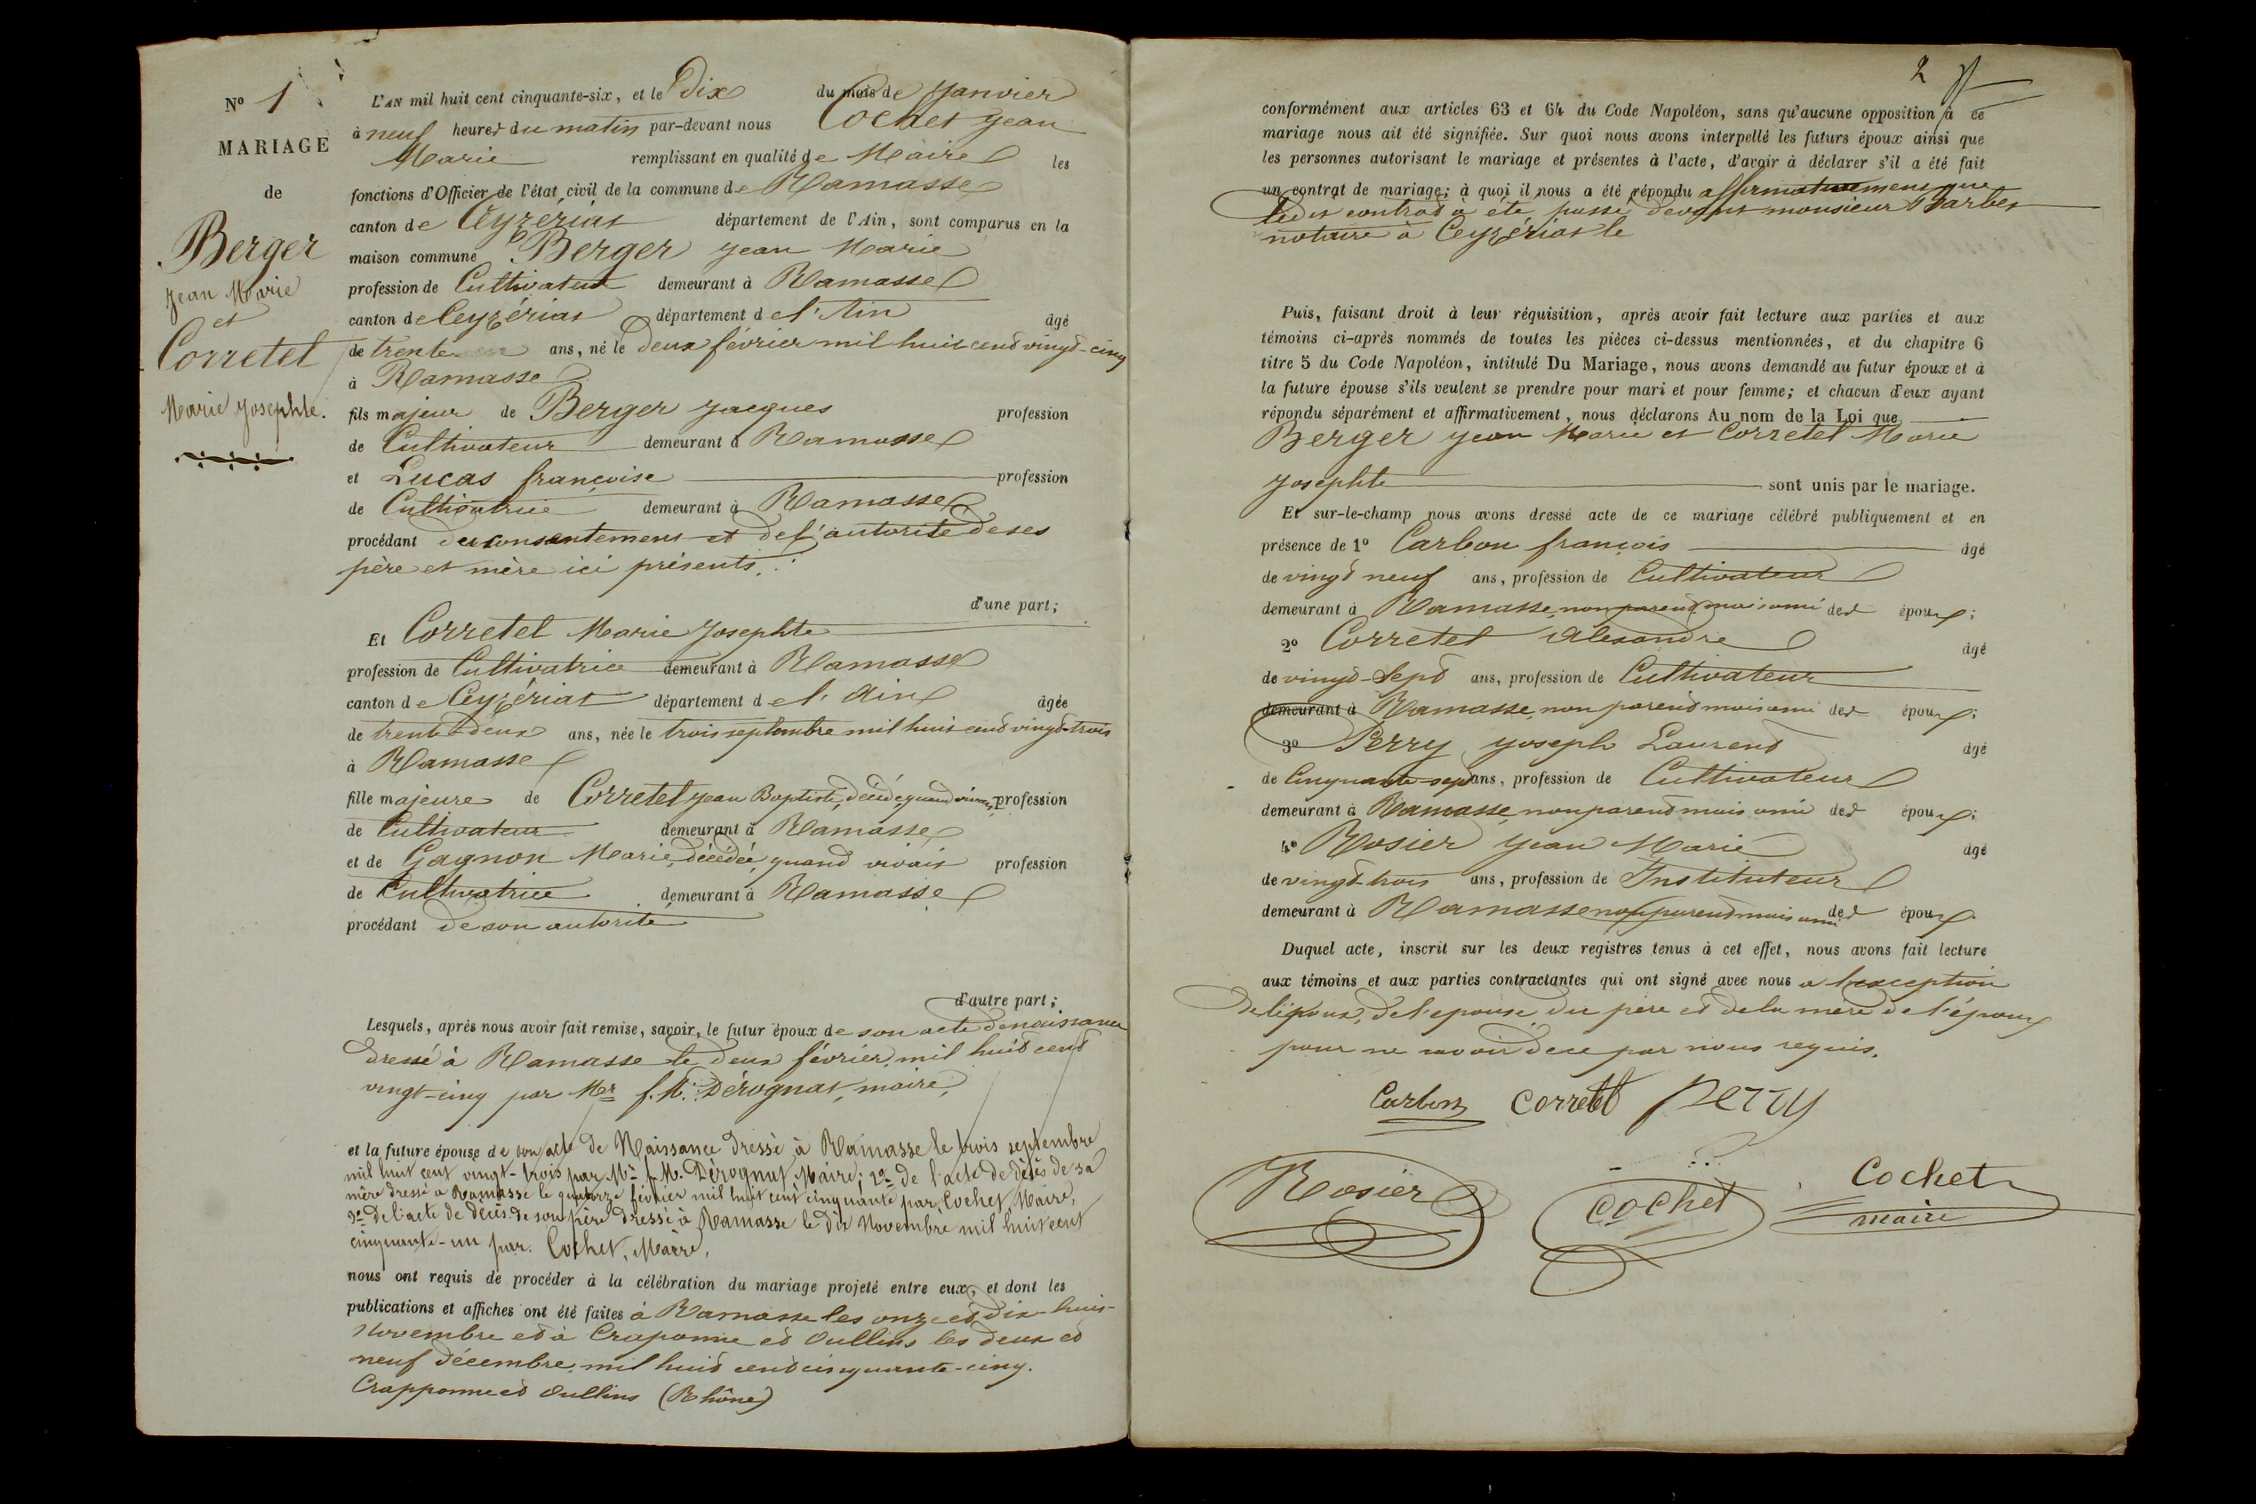 N° 1
MARIAGE
de
Berger
Jean Marie
et
Corretel
Marie Josephte.
L'AN mil huit cent cinquante-six, et le Dix du mois de Janvier
à neuf heures du matin par-devant nous Cochet Jean
Marie remplissant en qualité de Maire les
fonctions d'Officier de l'état civil de la commune de Ramasse
canton de Ceyzériat département de l'Ain, sont comparus en la
maison commune Berger Jean Marie
profession de Cultivateur demeurant à Ramasse
canton de Ceyzériat département de l'Ain âgé
de trente ans, né le deux février mil huit cend vingd-cinq
à Ramasse
fils majeur de Berger Jacques profession
de Cultivateur demeurant à Ramasse
et Lucas françoise profession
de Cultivatrice demeurant à Ramasse
procédant du consentement et de l'autorité de ses
père et mère ici présents.
d'une part;
Et Corretel Marie Josephte
profession de Cultivatrice demeurant à Ramasse
canton de Ceyzériat département de l'Ain âgée
de trente deux ans, née le trois septembre mil huit cend vingd-trois
à Ramasse
fille majeure de Corretel Jean Baptiste, décédé, quand vivait, profession
de Cultivateur demeurant à Ramasse
et de Gagnon Marie, décédée, quand vivait profession
de Cultivatrice demeurant à Ramasse
procédant de son autorité
d'autre part;
Lesquels, après nous avoir fait remise, savoir, le futur époux de son acte de naissance
dressé à Ramasse le deux février mil huid cend
vingt-cinq par Mr f. M. Dérognat, maire,
et la future épouse de son acte de Naissance dressé à Ramasse le trois septembre
mil huit cent vingt-trois par Mr f. M. Dérognat, Maire; 2° de l'acte de décès de sa
mère dressé à Ramasse le quatorze février mil huit cent cinquante par Cochet, Maire,
3° De l'acte de décès de son père dressé à Ramasse le dix Novembre mil huit cent
cinquante-un par Cochet, Maire,
nous ont requis de procéder à la célébration du mariage projeté entre eux, et dont les
publications et affiches ont été faites à Ramasse les onze ed dix-huit
Novembre ed à Craponne ed Oullins les deux ed
neuf décembre mil huid cend cinquante-cinq.
Crapponne ed Oullins (Rhône)
2
conformément aux articles 63 et 64 du Code Napoléon, sans qu'aucune opposition à ce
mariage nous ait été signifiée. Sur quoi nous avons interpellé les futurs époux ainsi que
les personnes autorisant le mariage et présentes à l'acte, d'avoir à déclarer s'il a été fait
un contrat de mariage; à quoi il nous a été répondu affirmativement que
ledit contrad a été passé devant monsieur Barbet
notaire à Ceyzériat le
Puis, faisant droit à leur réquisition, après avoir fait lecture aux parties et aux
témoins ci-après nommés de toutes les pièces ci-dessus mentionnées, et du chapitre 6
titre 5 du Code Napoléon, intitulé Du Mariage, nous avons demandé au futur époux et à
la future épouse s'ils veulent se prendre pour mari et pour femme; et chacun d'eux ayant
répondu séparément et affirmativement, nous déclarons Au nom de la Loi que
Berger Jean Marie et Corretel Marie
Josephte sont unis par le mariage.
Et sur-le-champ nous avons dressé acte de ce mariage célébré publiquement et en
présence de 1° Carbon françois âgé
de vingd neuf ans, profession de Cultivateur
demeurant à Ramasse, non parend mais ami des époux;
2° Corretel Alexandre âgé
de vingd-Sepd ans, profession de Cultivateur
demeurant à Ramasse, non parend mais ami des époux;
3° Perry Joseph Laurend âgé
de Cinquante sepd ans, profession de Cultivateur
demeurant à Ramasse, non parend mais ami des époux;
4° Rosier Jean Marie âgé
de vingd-trois ans, profession de Instituteur
demeurant à Ramasse non parend mais ami des époux.
Duquel acte, inscrit sur les deux registres tenus à cet effet, nous avons fait lecture
aux témoins et aux parties contractantes qui ont signé avec nous a l'exception
de l'époux, de l'épouse du père et de la mère de l'époux
pour ne savoir de ce par nous requis.
Carbon Corretel Perry
Rosier Cochet Cochet
maire